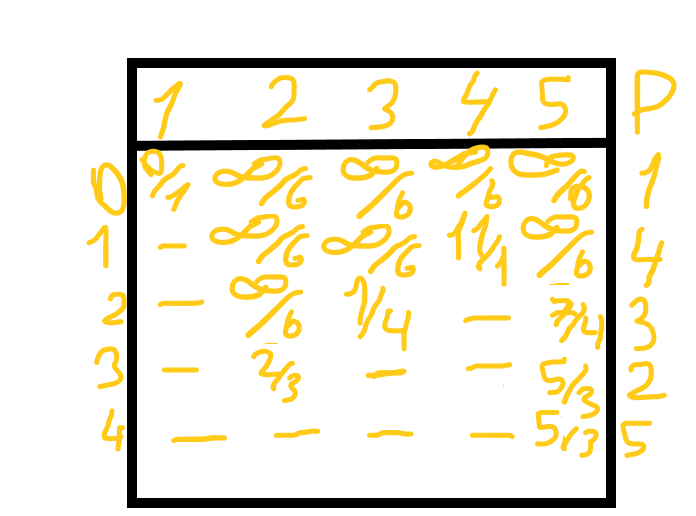 1 2 3 4 5 P
0 0/1 ∞/6 ∞/6 ∞/6 ∞/6 1
1 - ∞/6 ∞/6 11/1 ∞/6 4
2 - ∞/6 1/4 - 7/4 3
3 - 2/3 - - 5/3 2
4 - - - - 5/3 5